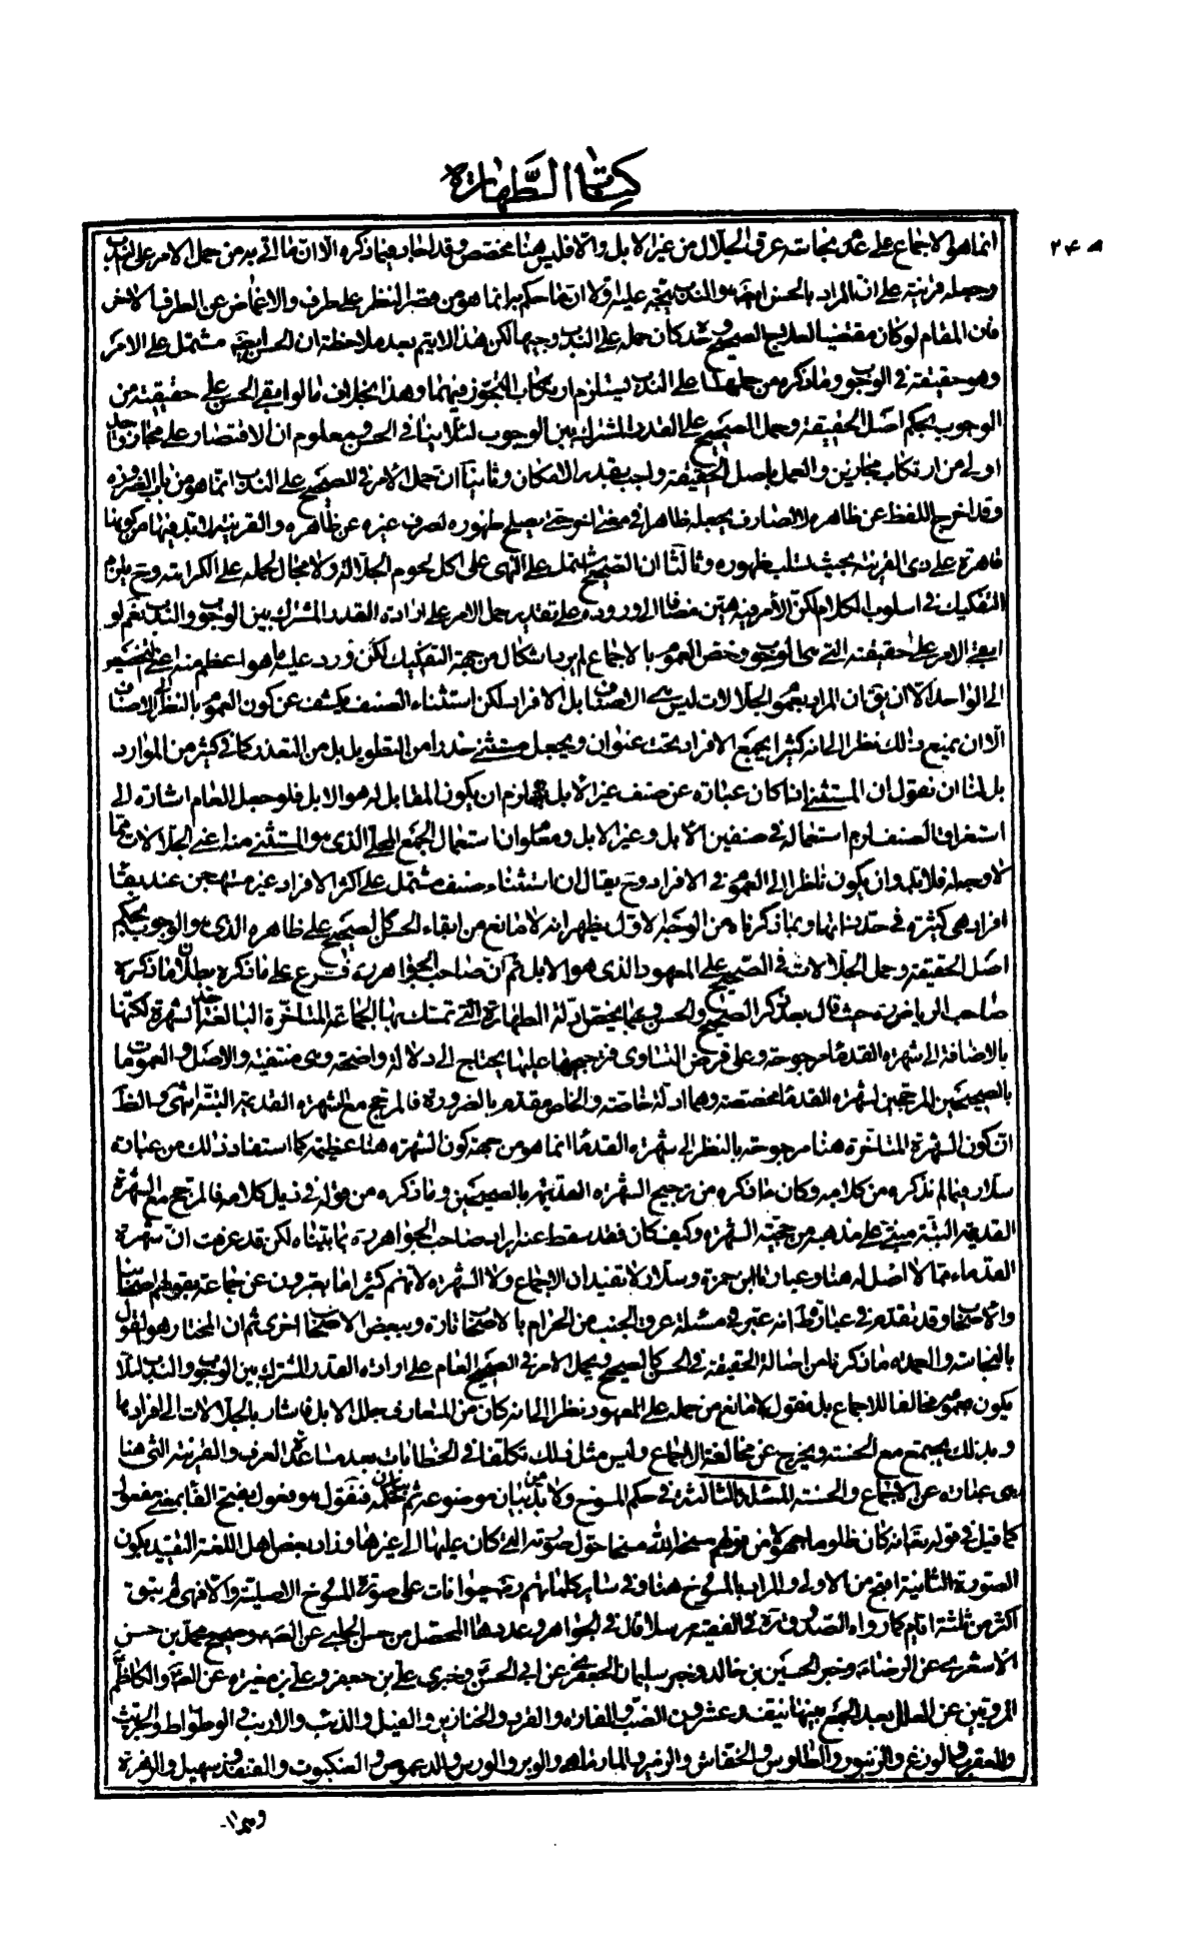 كتاب الطهارة
۲۴۵
انما هو الاجماع على عدم نجاسة عرق الجلال من غير الابل والا فليس هنا مخصص وقد اجاد فيما ذكره الا ان ما اتى به من حمل الامر على الندب
وجعله قرينة على ان المراد بالحسن ايضا هو الندب يتجه عليه اولا ان ما حكم به انما هو من قصر النظر على طرف والاغماض عن الطرف الاخر
فان المقام لو كان مقتضيا لعلاج الصحيح وحده كان حمله على الندب وجيها لكن هذا لا يتم بعد ملاحظة ان الحسن ايضا مشتمل على الامر
وهو حقيقة في الوجوب وما ذكره من حملهما على الندب يستلزم ارتكاب التجوز فيهما وهذا بخلاف ما لو ابقى الحسن على حقيقته من
الوجوب بحكم اصل الحقيقة وحمل الصحيح على القدر المشترك بين الوجوب لئلا ينافي الحسن ومعلوم ان الاقتصار على مجاز واحد
اولى من ارتكاب مجازين والعمل باصل الحقيقة واجب بقدر الامكان وثانيا ان حمل الامر في الصحيح على الندب انما هو من باب الضرورة
وقد اخرج اللفظ عن ظاهره لا الصارف يجعله ظاهرا في معنى اخر حتى يصلح ظهوره لصرف غيره عن ظاهره والقرينة لا بد فيها من كونها
قاهرة على ذي القرينة بحيث يسلب ظهوره وثالثا ان الصحيح مشتمل على النهي على اكل لحوم الجلالة ولا مجال لحمله على الكراهة وح يلزم
التفكيك في اسلوب الكلام لكن الامر فيه هين مضافا الى وروده على تقدير حمل الامر على ارادة القدر المشترك بين الوجوب والندب نعم لو
ابقى الامر على حقيقته التي هي الوجوب وخص العموم بالاجماع لم يرد اشكال من جهة التفكيك لكن ورد عليه ما هو اعظم منه اعني التخصيص
الى الواحد الا ان يق ان المراد بعموم الجلالات ليس هي الاصناف بل الافراد لكن استثناء الصنف يكشف عن كون العموم بالنظر الى الاصناف
الا ان يمنع ذلك نظرا الى انه كثيرا يجمع الافراد تحت عنوان ويجعل مستثنى حذرا من التطويل بل من التعذر كما في كثير من الموارد
بل لنا ان نقول ان المستثنى اذا كان عبارة عن صنف غير الابل لزم ان يكون المقابل له هو الابل فلو جعل العام اشارة الى
استغراق الصنف لزم استعماله في صنفين الابل وغير الابل ومعلوم ان استعمال الجمع المحلى الذي هو المستثنى منه اعني الجلالات مما
لا وجه له فلا بد وان يكون ناظرا الى العموم في الافراد وح يقال ان استثناء صنف مشتمل على اكثر الافراد غير مستهجن عند بقاء
افراد هي كثيرة في حد ذاتها وبما ذكرناه من الوجه الاول يظهر انه لا مانع من ابقاء الحسن كالصحيح على ظاهره الذي هو الوجوب بحكم
اصل الحقيقة وحمل الجلالات في الصحيح على المعهود الذي هو الابل ثم ان صاحب الجواهر ره فرع على ما ذكره بطلان ما ذكره
صاحب الرياض ره حيث قال بعد ذكر الصحيح والحسن وبهما يخص ادلة الطهارة التي تمسك بها الجماعة المتاخرة البالغة حد الشهرة لكنها
بالاضافة الى شهرة القدماء مرجوحة وعلى فرض التساوي فترجيحها عليها يحتاج الى دلالة واضحة وهي منتفية والاصل والعمومات
بالصحيحين المرجحين لشهرة القدماء مخصصة وهما ادلة خاصة والخاص مقدم بالضرورة فالمرجح مع الشهرة القديمة البتة انتهى والظ
ان كون الشهرة المتاخرة هنا مرجوحة بالنظر الى شهرة القدماء انما هو من جهة كون الشهرة هنا عظيمة كما استفاد ذلك من عبارة
سلار فيما لم نذكره من كلامه وكان ما ذكره من ترجيح الشهرة القديمة بالصحيحين وما ذكره من قوله في ذيل كلامه فالمرجح مع الشهرة
القديمة البتة مبني على مذهبه من حجية الشهرة وكيف كان فقد سقط عنه ايراد صاحب الجواهر ره بما بيناه لكن قد عرفت ان شهرة
القدماء مما لا اصل له هنا وعبارتا ابن حمزة وسلار لا تفيدان الاجماع ولا الشهرة لانهم كثيرا ما يعبرون عن جماعة بقولهم اصحابنا
والاصحاب وقد تقدم في عبارة ط انه عبر في مسئلة عرق الجنب من الحرام بالاصحاب تارة وببعض الاصحاب اخرى ثم ان المختار هو القول
بالنجاسة والعمدة ما ذكرنا من اصالة الحقيقة في الحسن كالصحيح ويحمل الامر في الصحيح العام على ارادة القدر المشترك بين الوجوب والندب لئلا
يكون عمومه مخالفا للاجماع بل نقول لا مانع من حمله على المعهود نظرا الى انه كان من المتعارف جلل الابل فاشار بالجلالات الى افرادها
وبذلك يجتمع مع الحسنة ويخرج عن مخالفة الاجماع وليس مثل ذلك تكلفا في الخطابات بعد مساعدة العرف والقرينة التي هنا
هي عبارة عن الاجماع والحسنة المسئلة الثالثة في حكم المسوخ ولا بد من بيان موضوعه ثم بيان حكمه فنقول هو فعول بفتح الفاء بمعنى مفعول
كما قيل في قوله تعالى انه كان ظلوما جهولا من قولهم مسخه الله مسخا حول صورته التي كان عليها الى غيرها وزاد بعض اهل اللغة التقييد بكون
الصورة الثانية اقبح من الاولى والمراد بالمسوخ هنا وفي ساير كلماتهم رض حيوانات على صورة المسوخ الاصلية والا فهي لم يتبق
اكثر من ثلثة ايام كما رواه الصدوق ره في الفقيه مرسلا قال في الجواهر وعددها المحتصل من حسن الحلبي عن الصادق وصحيح محمد بن حسن
الاشعري عن الرضا ع وخبر الحسين بن خالد وخبر سليمان الجعفري عن ابي الحسن وخبري علي بن جعفر وعلي بن مغيرة عن الصادق والكاظم
المرويين عن العلل بعد الجمع بينها نيف وعشرون الضب والفارة والقرد والخنازير والفيل والذئب والارنب والوطواط والجريث
والعقرب والوزغ والزنبور والطاوس والخفاش والزمير والمارماهي والوبر والورس والدعموص والعنكبوت والقنفذ وسهيل والزهرة